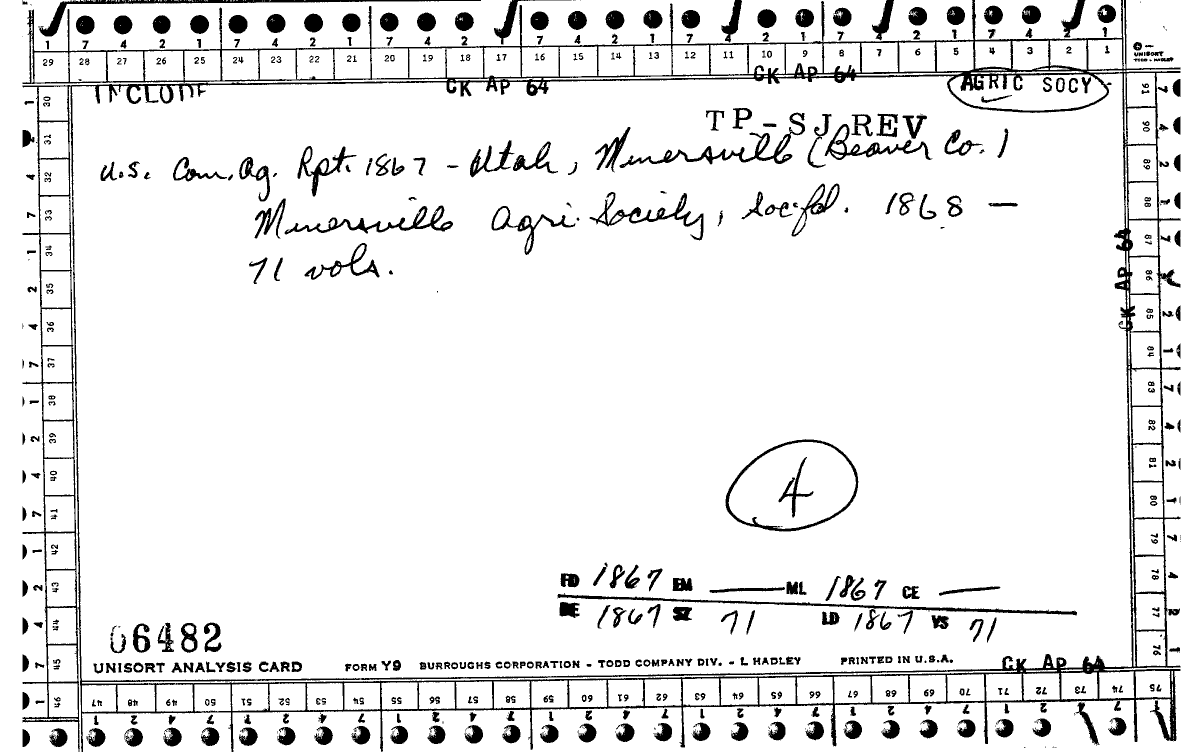 7 4 2 1 7 4 2 1 7 4 2 1 7 4 2 1 7 4 2 1 7 4 2 1 7 4 2 1
29 28 27 26 25 24 23 22 21 20 19 18 17 16 15 14 13 12 11 10 9 8 7 6 5 4 3 2 1
UNISORT
TODD - HADLEY
CK AP 64 CK AP 64 AGRIC SOCY
INCLUDE
TP-SJ REV
U.S. Com. Ag. Rpt. 1867 - Utah, Minersville (Beaver Co.)
Minersville Agri. Society, Soc. fd. 1868 —
71 vols.
CK AP 64
4
FD 1867 EM — ML 1867 CE —
BE 1867 SZ 71 LD 1867 VS 71
06482
UNISORT ANALYSIS CARD FORM Y9 BURROUGHS CORPORATION - TODD COMPANY DIV. - L HADLEY PRINTED IN U.S.A.
CK AP 64
30 31 32 33 34 35 36 37 38 39 40 41 42 43 44 45 46
91 90 89 88 87 86 85 84 83 82 81 80 79 78 77 76 75
47 48 49 50 51 52 53 54 55 56 57 58 59 60 61 62 63 64 65 66 67 68 69 70 71 72 73 74